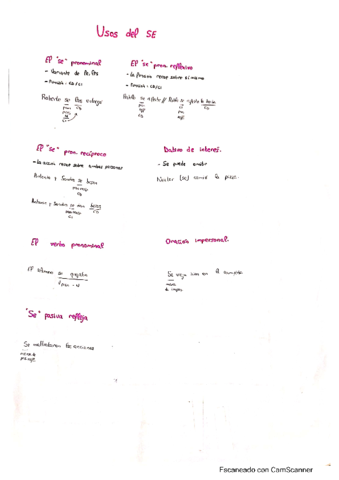 Usos del SE
El "se" pronominal
- Variante de le, les
- Función: CD/CI
Roberto se los entrega
CD
CI
El "se" pron. reflexivo
- la acción recae sobre sí mismo
- Función: CD/CI
Pablo se afeita // Pablo se afeita la barba
CD
CD
CI
El "se" pron. recíproco
- la acción recae sobre ambas personas
Antonio y Sandra se besan
CD
Antonio y Sandra se dan besos
CD
CI
Dativo de interés.
- Se puede omitir
Néstor (se) comió la pizza.
El verbo pronominal
El alumno se queja
Oración impersonal.
Se vive bien en el campo
marca
de impers.
"Se" pasiva refleja
Se las canciones
marca de
Escaneado con CamScanner